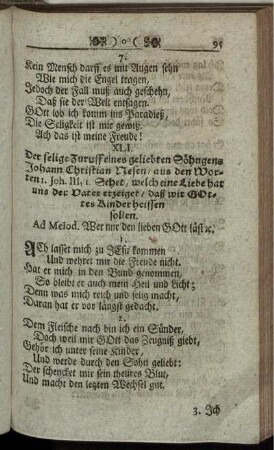 95
7.
Kein Mensch darff es mit Augen sehn
Wie mich die Engel tragen,
Jedoch der Fall muß auch geschehn,
Daß sie der Welt entsagen.
GOtt lob ich komm ins Paradieß,
Die Seligkeit ist mir gewiß.
Ach das ist meine Freude!
XLI.
Der selige Zuruff eines geliebten Söhngens
Johann Christian Nesen / aus den Wor-
ten 1. Joh. III, 1. Sehet, welch eine Liebe hat
uns der Vater erzeiget / daß wir GOt-
tes Kinder heissen
sollen.
Ad Melod. Wer nur den lieben GOtt läst ꝛc.
1.
ACh lasset mich zu JEsu kommen
Und wehret mir die Freude nicht.
Hat er mich in den Bund genommen,
So bleibt er auch mein Heil und Licht;
Denn was mich reich und selig macht,
Daran hat er vor längst gedacht.
2.
Dem Fleische nach bin ich ein Sünder,
Doch weil mir GOtt das Zeugniß giebt,
Gehör ich unter seine Kinder,
Und werde durch den Sohn geliebt:
Der schencket mir sein theures Blut,
Und macht den letzten Wechsel gut.
3. Ich